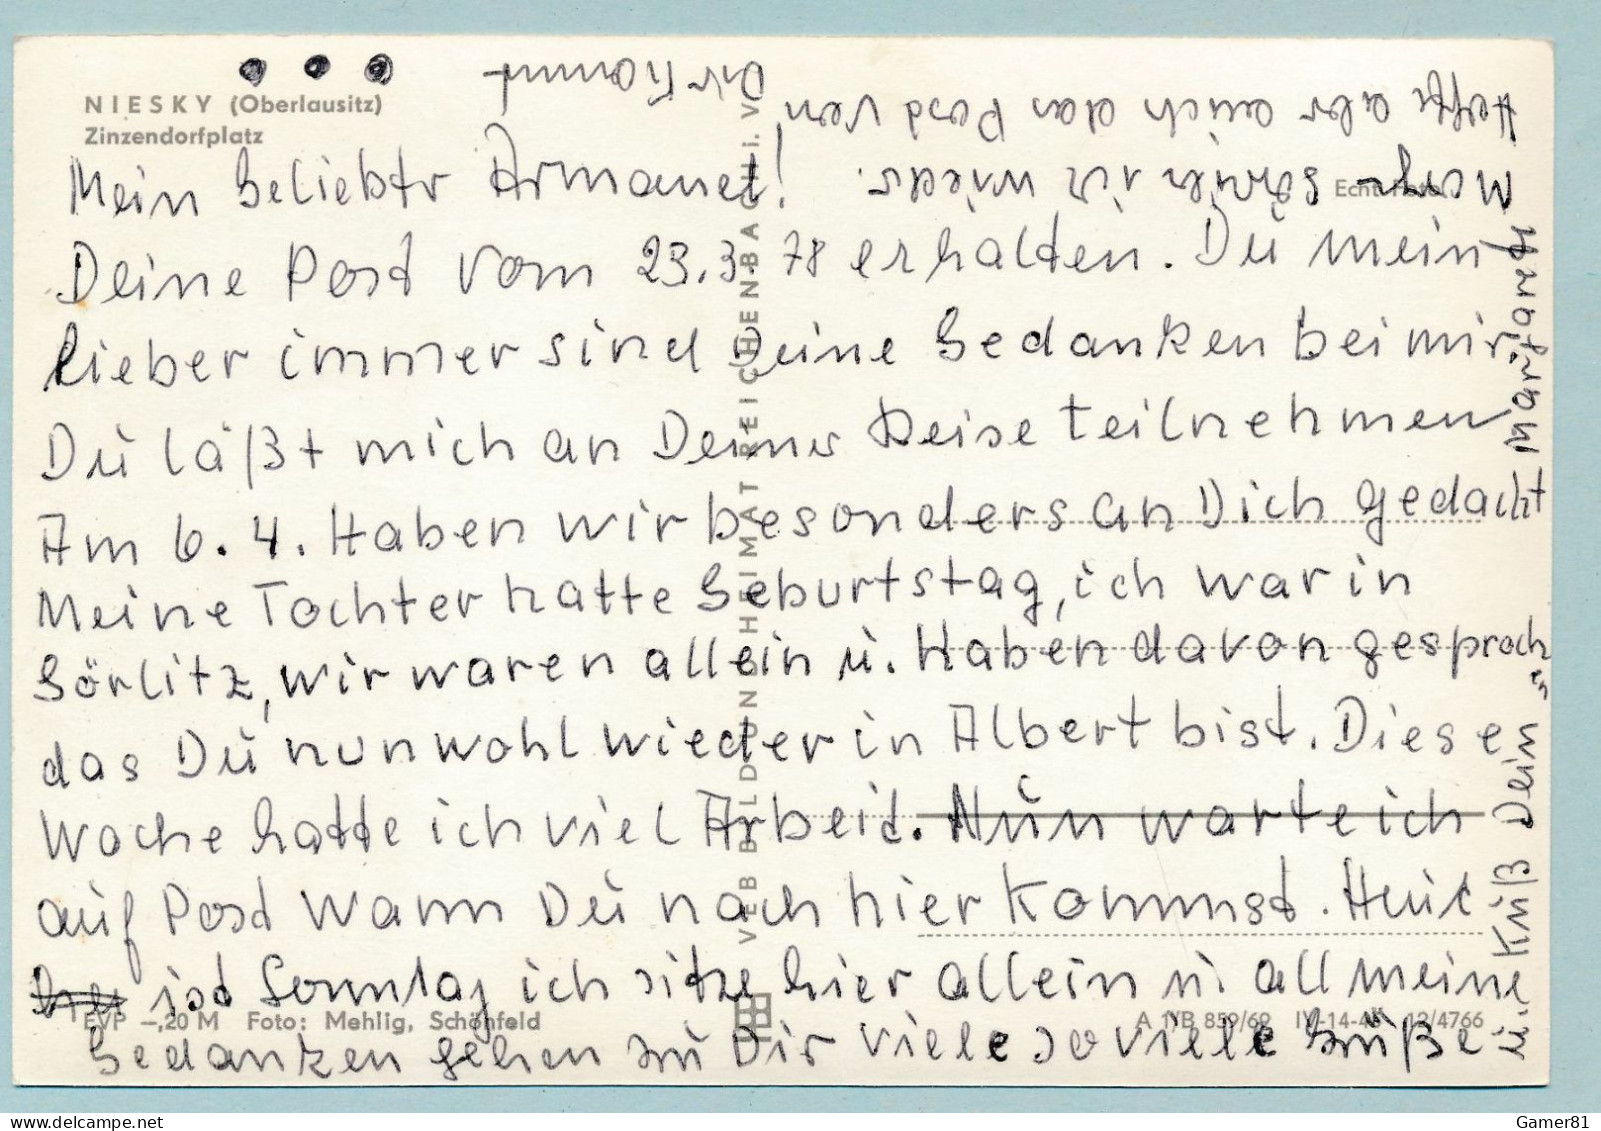 NIESKY (Oberlausitz)
Zinzendorfplatz
Mein Geliebtr Armand!
Deine Post vom 23.3.78 erhalten. Du mein
lieber immer sind Deine Gedanken bei mir,
Du läßt mich an Deiner Reise teilnehmen
Am 6.4. Haben wir besonders an Dich gedacht
Meine Tochter hatte Geburtstag, ich war in
Görlitz, wir waren allein u. Haben davon gesprochen
das Du nun wohl wieder in Albert bist. Diese
Woche hatte ich viel Arbeit. Nun warte ich
auf Post Wann Du nach hier Kommst. Heut
ist Sonntag ich sitze hier allein u. all meine
Gedanken gehen zu Dir viele so viele Grüße
u. Kuß Dein Margarete
Morgen schreib ich wieder.
Hoffe aber auch das Post von
Dir Kommt
Echt Foto
VEB BILD UND HEIMAT REICHENBACH i. V.
EVP –,20 M Foto: Mehlig, Schönfeld
A 1/B 859/69 IV-14-48 12/4766
Gamer81